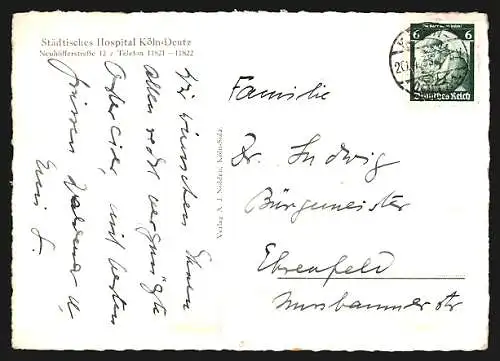 Städtisches Hospital Köln-Deutz
Neuhöfferstraße 12 / Telefon 11821 – 11822
Wir wünschen Ihnen
allen recht vergnügte
Ostereier, mit besten
Grüssen
Verlag A. J. Köln-Sülz
6 6
Deutsches Reich
Familie
Dr. Ludwig
Bürgermeister
Ehrenfeld
Nussbaumer str